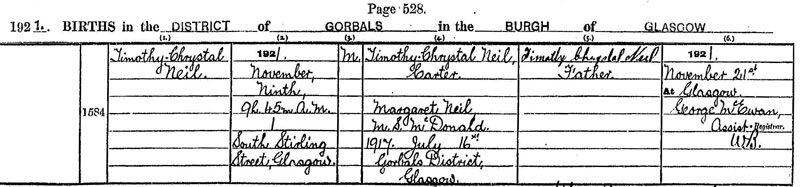 Page 528.
1921. BIRTHS in the DISTRICT of GORBALS in the BURGH of GLASGOW
(1.) (2.) (3.) (4.) (5.) (6.)
1584
Timothy Chrystal
Neil.
1921.
November,
Ninth,
9h. 45m A.M.
1
South Stirling
Street, Glasgow.
M.
Timothy Chrystal Neil,
Carter.
Margaret Neil,
M.S. McDonald.
1917. July 16th
Gorbals District,
Glasgow.
Timothy Chrystal Neil
Father.
1921.
November 21st
At Glasgow.
George McEwan,
Assist. Registrar.